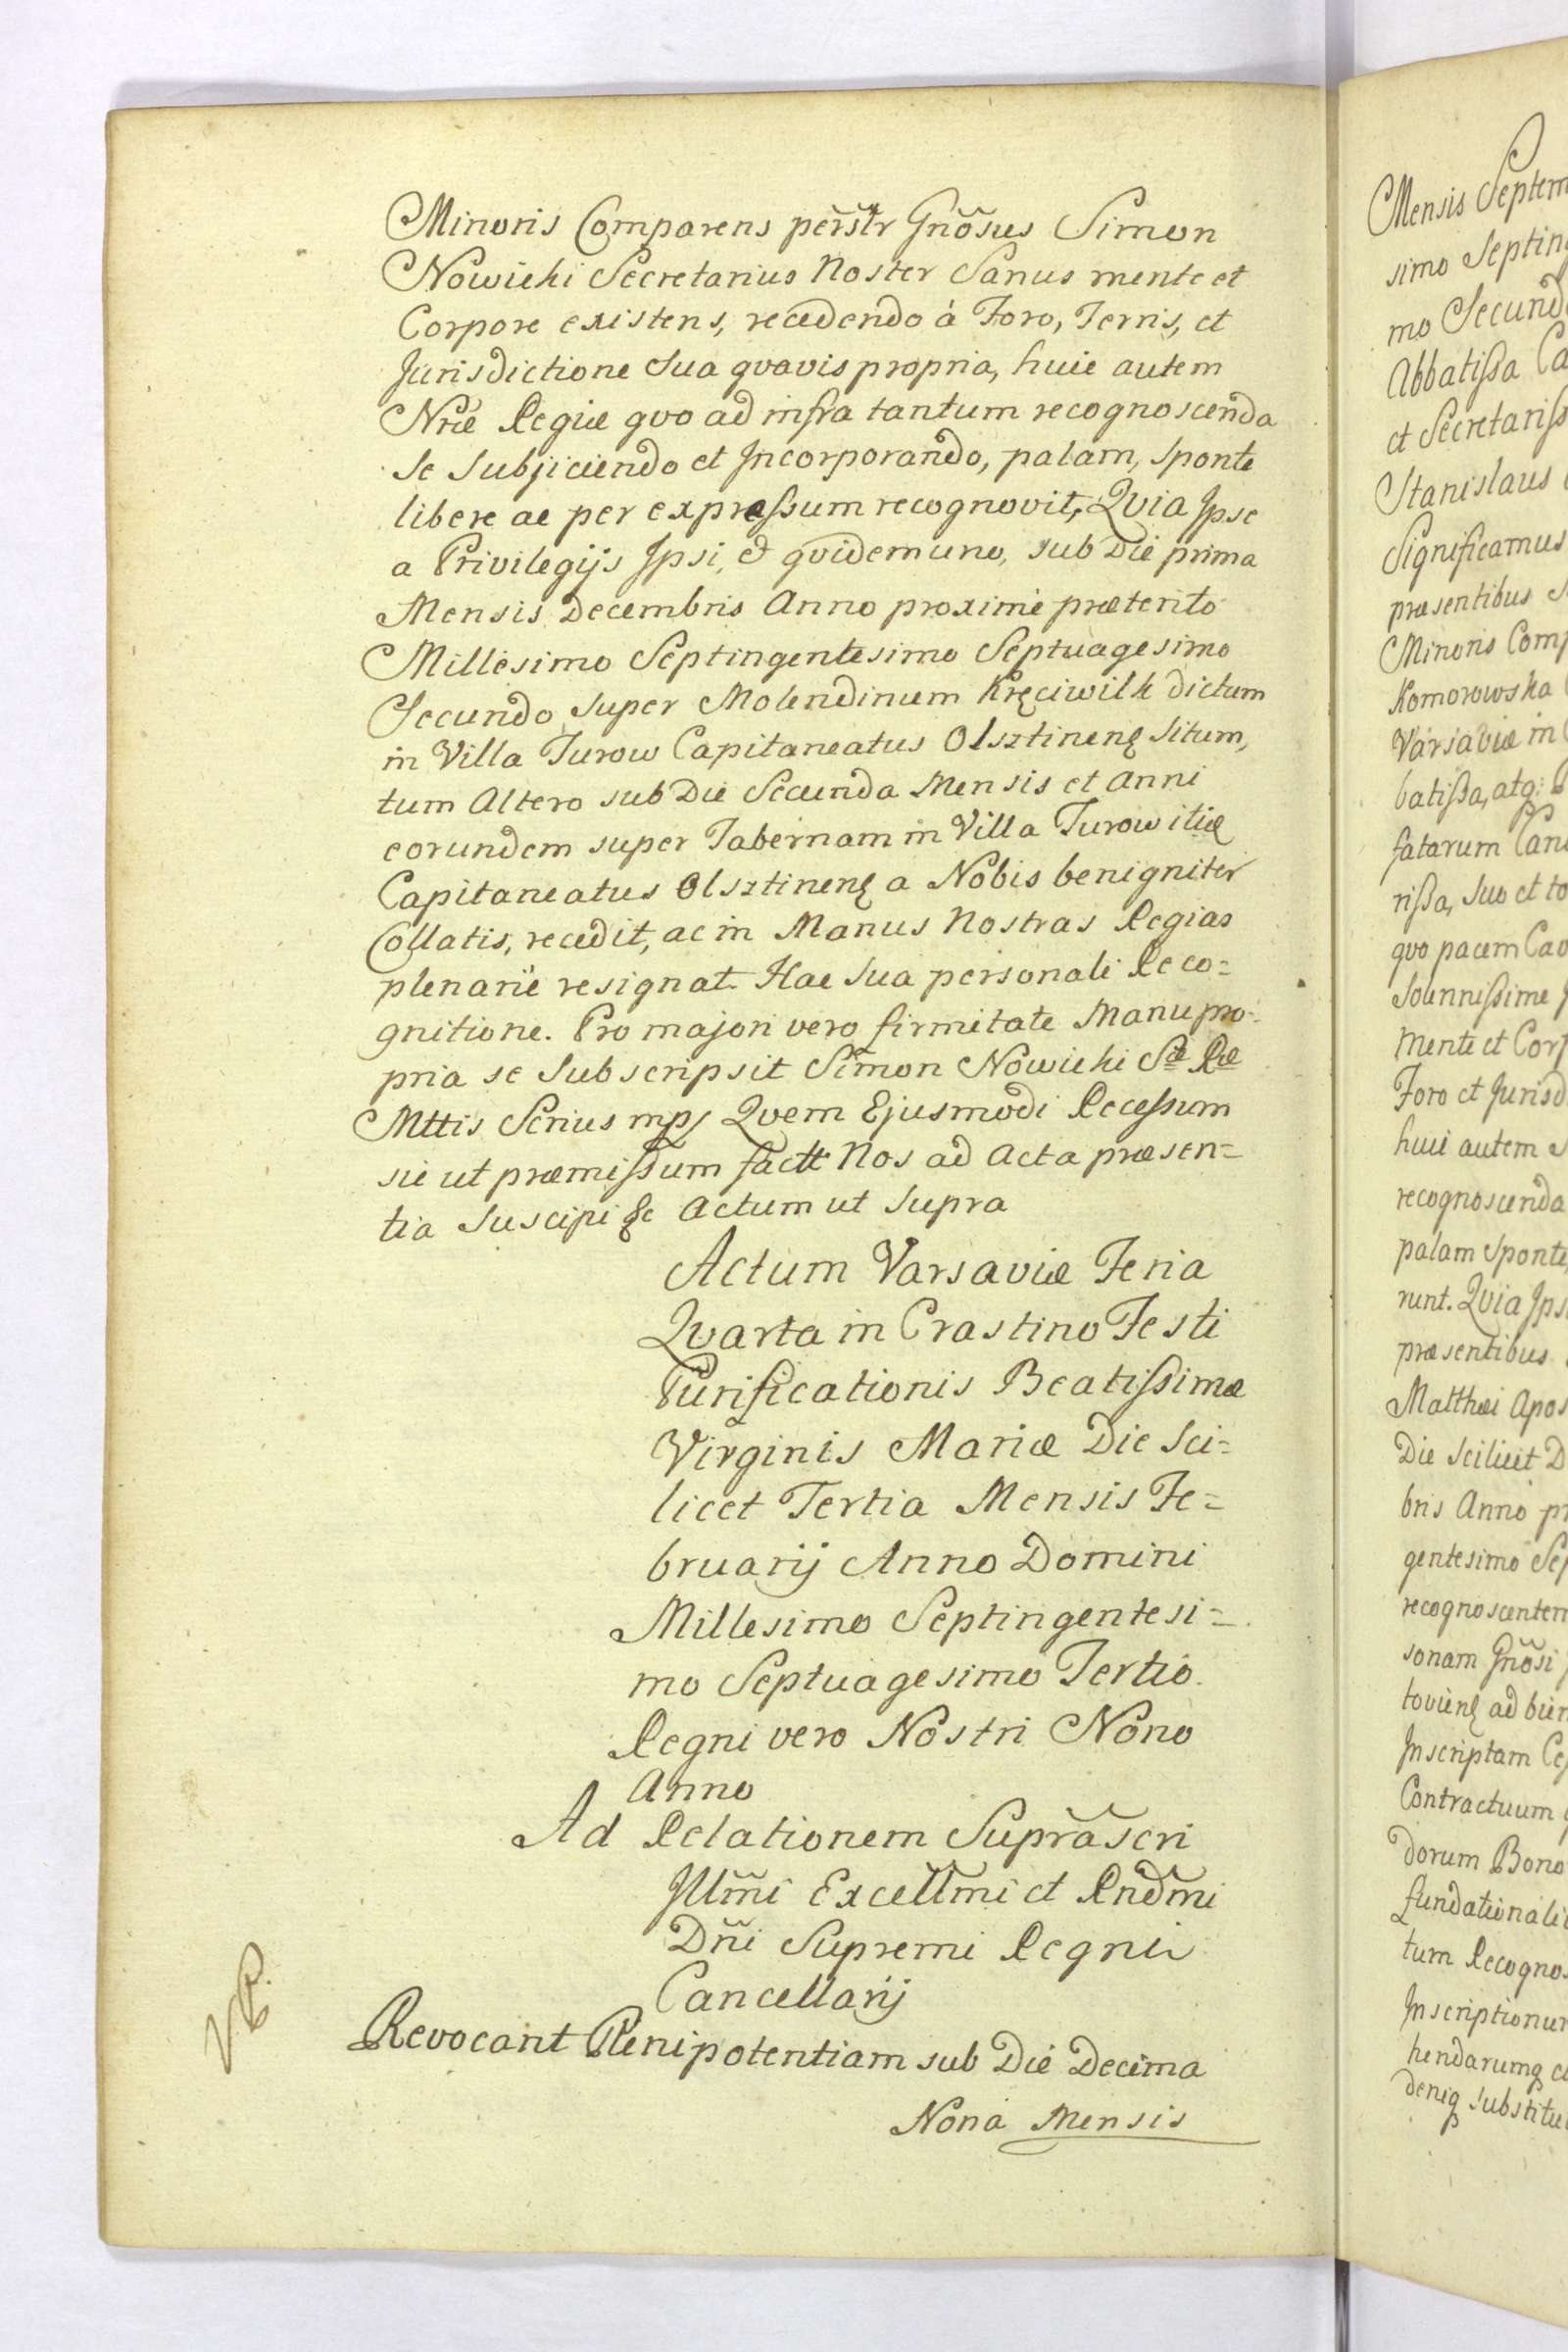 Minoris Comparens perstr Gnosus Simon
Nowicki Secretarius Noster Sanus mente et
Corpore existens, recedendo à Foro, Terris, et
Jurisdictione Sua qvavis propria, huic autem
Nrae Regiae qvo ad infra tantum recognoscenda
Se Subjiciendo et Incorporando, palam, Sponte
libere ac per expressum recognovit, Qvia Ipse
a Privilegijs Ipsi, & qvidem uno, sub Die prima
Mensis Decembris Anno proxime praeterito
Millesimo Septingentesimo Septuagesimo
Secundo super Molendinum Kręciwilk dictum
in Villa Turow Capitaneatus Olsztinenę Situm,
tum Altero sub Die Secunda Mensis et Anni
eorundem super Tabernam in Villa Turow itiae
Capitaneatus Olsztinenę a Nobis benigniter
Collatis, recedit, ac in Manus Nostras Regias
plenarie resignat. Hac Sua personali Reco=
gnitione. Pro majori vero firmitate Manu pro-
pria se Subscripsit Simon Nowicki Sae Rae
Mttis Scrius mp/ Qvem Ejusmodi Recessum
sic ut praemissum factt Nos ad Acta praesen=
tia Suscipi &c Actum ut Supra
Actum Varsaviae Feria
Qvarta in Crastino Festi
Purificationis Beatissimae
Virginis Mariae Die Sci=
licet Tertia Mensis Fe=
bruarij Anno Domini
Millesimo Septingentesi=
mo Septuagesimo Tertio.
Regni vero Nostri Nono
Anno
Ad Relationem Suprascri
Illmi Excellmi et Rndmi
Dni Supremi Regni
Cancellarij
Revocant Plenipotentiam sub Die Decima
Nona Mensis
Mensis Septem
simo Septin
mo Secund
Abbatissa Ca
et Secretariss
Stanislaus
Significamus
praesentibus
Minoris Comp
Komorowska
Varsaviae in
batissa, atq: P
fatarum Can
rissa, suo et to
qvo pacem Cao
Solennissime
Mente et Corp
Foro et Jurisd
huic autem
recognoscenda
palam Sponte,
runt. Qvia Ips
praesentibus
Matthaei Apos
Die Scilicet D
bris Anno pr
gentesimo Sep
recognoscentem
sonam Gnosi
tovienę ad bien
Inscriptam Ce
Contractuum
dorum Bono
fundationali
tum Recogno
Inscriptionum
hendarumq c
deniq substitu